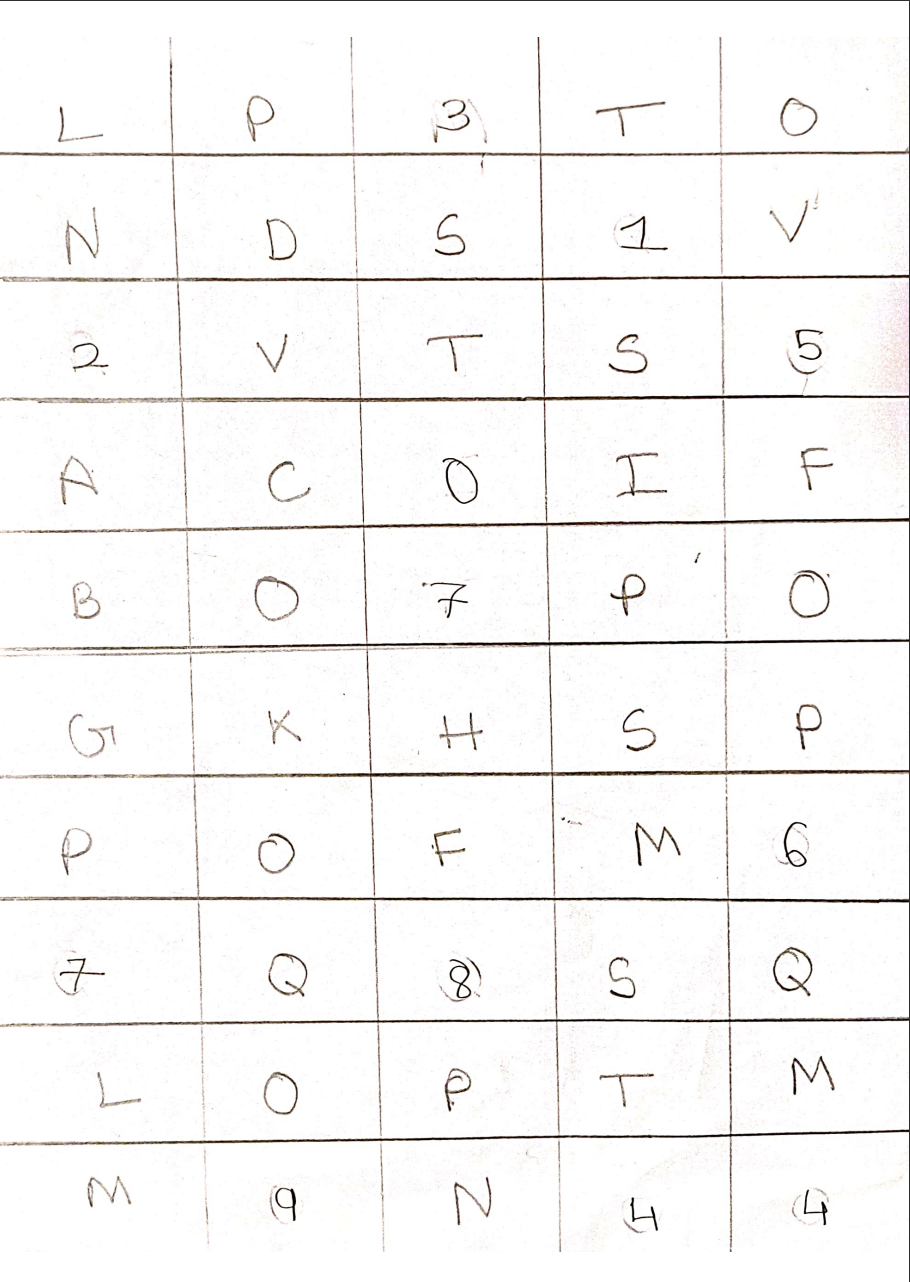 L P 3 T O
N D S 1 V
2 V T S 5
A C O I F
B O 7 P O
G K H S P
P O F M 6
7 Q 8 S Q
L O P T M
M 9 N 4 4